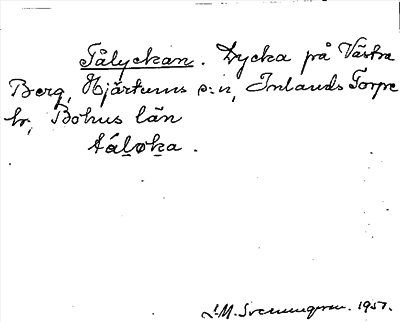 Tålyckan. Lycka på Västra
Berg, Hjärtums s:n, Inlands Torpe
hr, Bohus län
tályka.
M. Svenungsson. 1951.